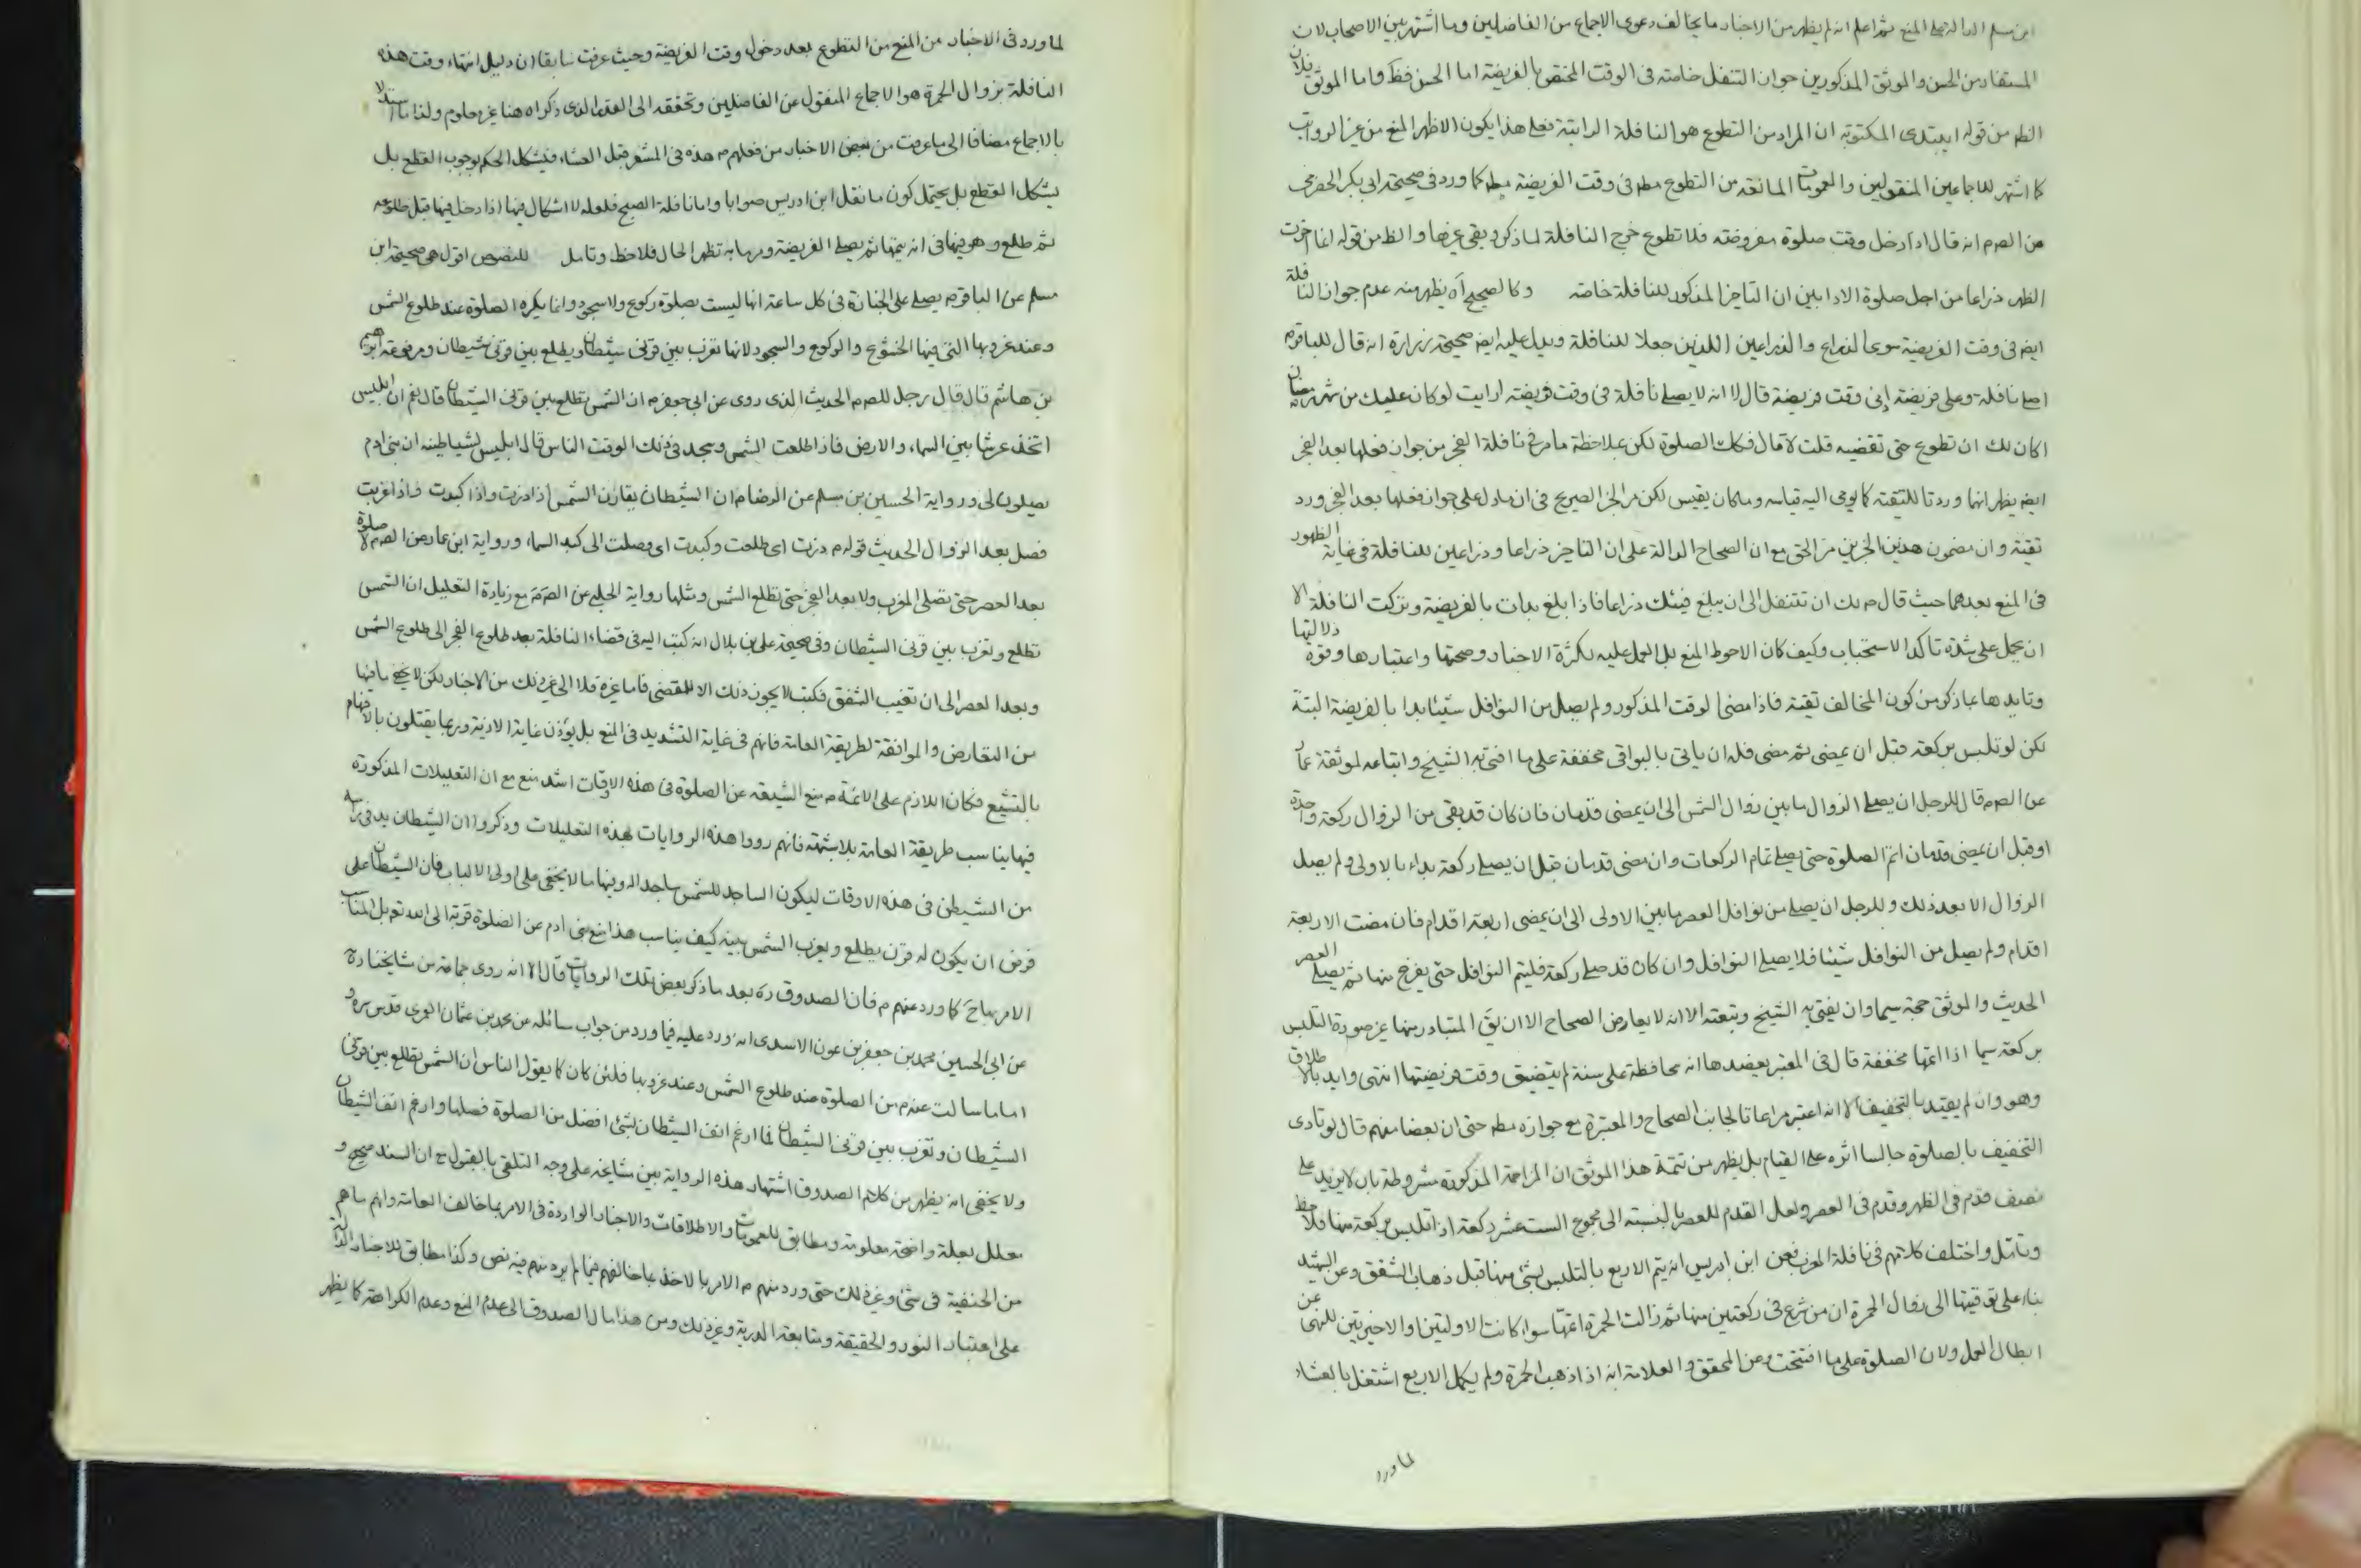 ابن مسلم الدالة على المنع ثم اعلم انه لم يظهر من الاخبار ما يخالف دعوى الاجماع من الفاضلين وما اشتهر بين الاصحاب لان
المستفاد من الحسن والموثق المذكورين جواز التنفل خاصته فى الوقت المختص بالفريضة اما الحسن فظ واما الموثق فلان
الظ من قوله ايبتدى المكتوبة ان المراد من التطوع هو النافلة الراتبة فعلى هذا يكون الاظهر المنع من غير الرواتب
كما اشتهر للاجماعين المنقولين والعمومات المانعة من التطوع مط فى وقت الفريضة مط كما ورد فى صحيحة ابى بكر الحضرمى
عن الصم انه قال اذا دخل وقت صلوة مفروضة فلا تطوع خرج النافلة لما ذكر وبقى غيرها والظ من قوله انما اخرت
الظهر ذراعا من اجل صلوة الاوابين ان التاخير المذكور للنافلة خاصة وكالصحيح اه يظهر منه عدم جواز النافلة
ايض فى وقت الفريضة سوى الذراع والذراعين اللذين جعلا للنافلة ويدل عليه ايض صحيحة زرارة انه قال للباقرم
اصلى نافلة وعلى فريضة او فى وقت فريضة قال لا انه لا يصلى نافلة فى وقت فريضة ارايت لو كان عليك من شهر رمضان
اكان لك ان تطوع حتى تقضيه قلت لا قال فكك الصلوة لكن بملاحظة ما مر فى نافلة الفجر من جواز فعلها بعد الفجر
ايض يظهر انها وردتا للتقية كما يومى اليه قياسه وما كان يقيس لكن مر الخبر الصريح فى ان ما دل على جواز فعلها بعد الفجر ورد
تقية وان مضمون هذين الخبرين مر الحق مع ان الصحاح الدالة على ان التاخير ذراعا وذراعين للنافلة فى غاية الظهور
فى المنع بعدهما حيث قال م لك ان تتنفل الى ان يبلغ فيئك ذراعا فاذا بلغ بدات بالفريضة وتركت النافلة الا
ان يحمل على شدة تاكد الاستحباب وكيف كان الاحوط المنع بل العمل عليه لكثرة الاخبار وصحتها واعتبارها وقوة دلالتها
وتايدها بما ذكر من كون المخالف تقية فاذا مضى الوقت المذكور ولم يصل من النوافل شيئا بدا بالفريضة البتة
لكن لو تلبس بركعة قبل ان يمضى ثم مضى فله ان ياتى بالبواقى مخففة على ما افتى به الشيخ واتباعه لموثقة عمار
عن الصم قال للرجل ان يصلى الزوال ما بين زوال الشمس الى ان يمضى قدمان فان كان قد بقى من الزوال ركعة واحدة
او قبل ان يمضى قدمان اتم الصلوة حتى يصلى تمام الركعات وان مضى قدمان قبل ان يصلى ركعة بداء بالاولى ولم يصل
الزوال الا بعد ذلك وللرجل ان يصلى من نوافل العصر ما بين الاولى الى ان يمضى اربعة اقدام فان مضت الاربعة
اقدام ولم يصل من النوافل شيئا فلا يصلى النوافل وان كان قد صلى ركعة فليتم النوافل حتى يفرغ منها ثم يصلى العصر
الحديث والموثق حجة سيما وان يفتى به الشيخ وتبعته الا انه لا يعارض الصحاح الا ان يق المتبادر منها غير صورة التلبس
بركعة سيما اذا اتمها مخففة قال فى المعتبر يعضدها انه محافظة على سنة لم يتضيق وقت فريضتها انتهى وايد بالاطلاق
وهو وان لم يقيد بالتخفيف الا انه اعتبر مراعاتا لجانب الصحاح والمعتبرة مع جوازه مط حتى ان بعضا منهم قال لو تادى
التخفيف بالصلوة جالسا اثره على القيام بل يظهر من تتمة هذا الموثق ان المزاحمة المذكورة مشروطة بان لا يزيد على
نصف قدم فى الظهر وقدم فى العصر ولعل القدم للعصر بالنسبة الى مجموع الست عشر ركعة اذا تلبس بركعة منها فلاحظ
وتامل واختلف كلامهم فى نافلة المغرب فعن ابن ادريس انه يتم الاربع بالتلبس بشئ منها قبل ذهاب الشفق وعن الشهيد
بناء على توقيتها الى زوال الحمرة ان من شرع فى ركعتين منها ثم زالت الحمرة اتمها سواء كانت الاولتين او الاخيرتين للنهى عن
ابطال العمل ولان الصلوة على ما افتتحت وعن المحقق والعلامة انه اذا ذهب الحمرة ولم يكمل الاربع اشتغل بالعشاء
لما ورد
لما ورد فى الاخبار من المنع من التطوع بعد دخول وقت الفريضة وحيث عرفت سابقا ان دليل انتهاء وقت هذه
النافلة بزوال الحمرة هو الاجماع المنقول عن الفاضلين وتحققه الى القدر الذى ذكراه هنا غير معلوم ولذا ما استدلا
بالاجماع مضافا الى ما عرفت من بعض الاخبار من فعلهم م هذه فى المشعر قبل العشاء فيشكل الحكم بوجوب القطع بل
يشكل القطع بل يحتمل كون ما نقل ابن ادريس صوابا واما نافلة الصبح فلعله لا اشكال فيها اذا دخل فيها قبل طلوعه
ثم طلع وهو فيها فى انه يتمها ثم يصلى الفريضة ومر ما به تظهر الحال فلاحظ وتامل للنصوص اقول هى صحيحة ابن
مسلم عن الباقرم يصلى على الجنازة فى كل ساعة انها ليست بصلوة ركوع ولا سجود وانما يكره الصلوة عند طلوع الشمس
وعند غروبها التى فيها الخشوع والركوع والسجود لانها تغرب بين قرنى شيطان ويطلع بين قرنى شيطان ومرفوعة ابرهيم
بن هاشم قال قال رجل للصم الحديث الذى روى عن ابى جعفرم ان الشمس تطلع بين قرنى الشيطان قال نعم ان ابليس
اتخذ عرشا بين السماء والارض فاذا طلعت الشمس وسجد فى ذلك الوقت الناس قال ابليس لشياطينه ان بنى ادم
يصلون لى ورواية الحسين بن مسلم عن الرضام ان الشيطان يقارن الشمس اذا ذرت واذا كبدت واذا غربت
فصل بعد الزوال الحديث قوله م ذرت اى طلعت وكبدت اى وصلت الى كبد السماء ورواية ابن عمار عن الصم لا صلوة
بعد العصر حتى تصلى المغرب ولا بعد الفجر حتى تطلع الشمس ومثلها رواية الحلبى عن الصم مع زيادة التعليل ان الشمس
تطلع وتغرب بين قرنى الشيطان وفى صحيحة على بن بلال انه كتب اليه فى قضاء النافلة بعد طلوع الفجر الى طلوع الشمس
وبعد العصر الى ان تغيب الشفق فكتب لا يجوز ذلك الا للمقتضى فاما غيره فلا الى غير ذلك من الاخبار لكن لا يخفى ما فيها
من التعارض والموافقة لطريقة العامة فانهم فى غاية التشديد فى المنع بل يؤذن غاية الاذية وربما يقتلون بالاتهام
بالتشيع فكان اللازم على الائمة م منع الشيعة عن الصلوة فى هذه الاوقات اشد منع مع ان التعليلات المذكورة
فيها يناسب طريقة العامة بلا شبهة فانهم رووا هذه الروايات بهذه التعليلات وذكروا ان الشيطان يدنى راسه
من الشمس فى هذه الاوقات ليكون الساجد للشمس ساجدا له وفيها ما لا يخفى على اولى الالباب فان الشيطان على
فرض ان يكون له قرن يطلع ويغرب الشمس بينه كيف يناسب هذا منع بنى ادم عن الصلوة قربة الى الله تع بل المناسب
الامر بها ح كما ورد عنهم م فان الصدوق ره بعد ما ذكر بعض تلك الروايات قال الا انه روى جماعة من مشايخنا ره
عن ابى الحسين محمد بن جعفر بن عون الاسدى انه ورد عليه فيما ورد من جواب سائله عن محمد بن عثمان العمرى قدس سره و
اما ما سالت عنه م من الصلوة عند طلوع الشمس وعند غروبها فلئن كان كما يقول الناس ان الشمس تطلع بين قرنى
الشيطان وتغرب بين قرنى الشيطان فما ارغم انف الشيطان بشئ افضل من الصلوة فصلها وارغم انف الشيطان
ولا يخفى انه يظهر من كلام الصدوق اشتهار هذه الرواية بين مشايخه على وجه التلقى بالقبول مع ان السند صحيح و
معلل بعلة واضحة معلومة ومطابق للعمومات والاطلاقات والاخبار الواردة فى الامر بما خالف العامة وانهم ما هم
من الحنفية فى شئ وغير ذلك حتى ورد منهم م الامر بالاخذ بما خالفهم فيما لم يرد منهم فيه نص وكذا مطابق للاخبار الدالة
على اعتبار النور والحقيقة ومتابعة الدرية وغير ذلك ومن هذا مال الصدوق الى عدم المنع وعدم الكراهة كما يظهر